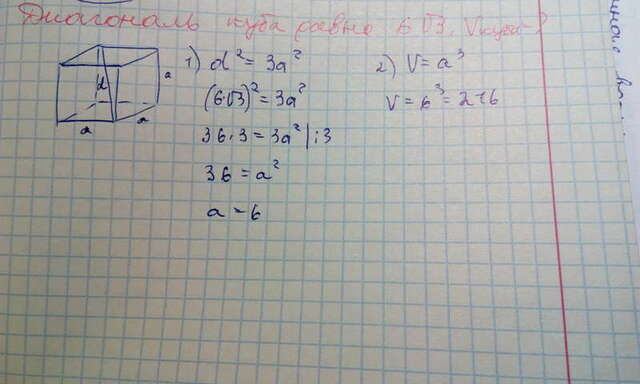 Диагональ куба равна 6√3, Vкуба-?
d
a
a
a
1) d² = 3a²
(6√3)² = 3a²
36·3 = 3a² | :3
36 = a²
a = 6
2) V = a³
V = 6³ = 216